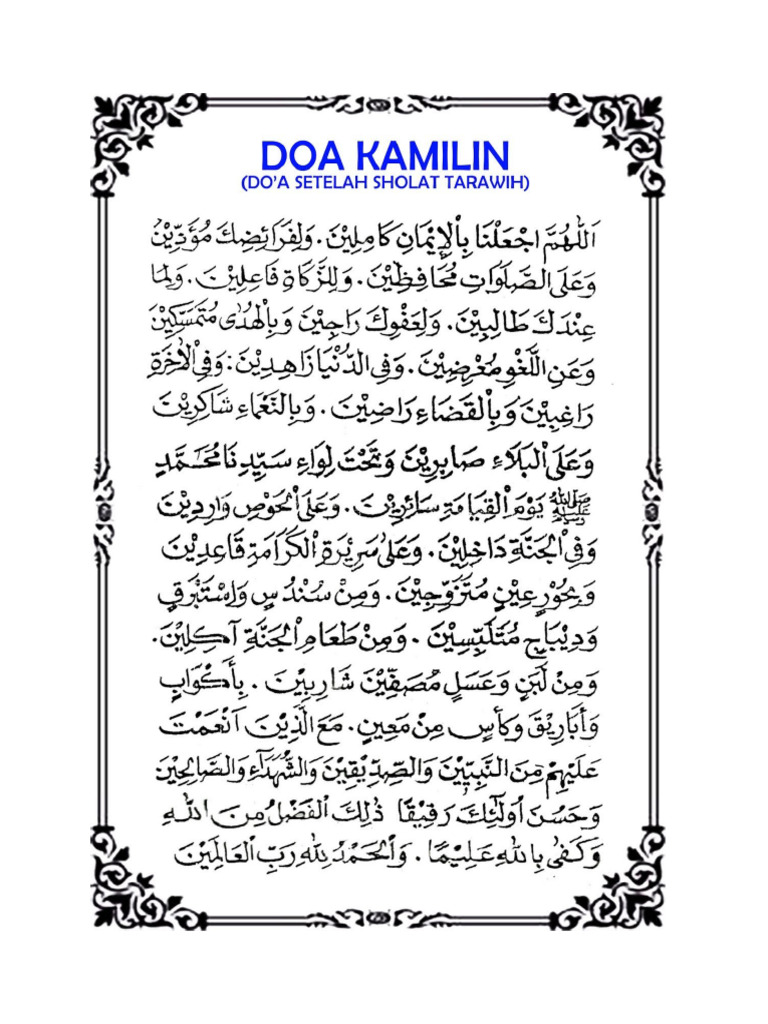 DOA KAMILIN
(DO'A SETELAH SHOLAT TARAWIH)
اَللّٰهُمَّ اجْعَلْنَا بِاْلإِيْمَانِ كَامِلِيْنَ. وَلِفَرَائِضِكَ مُؤَدِّيْنَ
وَعَلَى الصَّلَوَاتِ مُحَافِظِيْنَ. وَلِلزَّكَاةِ فَاعِلِيْنَ. وَلِمَا
عِنْدَكَ طَالِبِيْنَ. وَلِعَفْوِكَ رَاجِيْنَ وَبِالْهُدٰى مُتَمَسِّكِيْنَ
وَعَنِ اللَّغْوِ مُعْرِضِيْنَ. وَفِي الدُّنْيَا زَاهِدِيْنَ: وَفِي اْلاٰخِرَةِ
رَاغِبِيْنَ وَبِالْقَضَاءِ رَاضِيْنَ. وَبِالنَّعْمَاءِ شَاكِرِيْنَ
وَعَلَى الْبَلَاءِ صَابِرِيْنَ وَتَحْتَ لِوَاءِ سَيِّدِنَا مُحَمَّدٍ
ﷺ يَوْمَ الْقِيَامَةِ سَائِرِيْنَ. وَعَلَى الْحَوْضِ وَارِدِيْنَ
وَفِي الْجَنَّةِ دَاخِلِيْنَ. وَعَلٰى سَرِيْرَةِ الْكَرَامَةِ قَاعِدِيْنَ
وَبِحُوْرٍ عِيْنٍ مُتَزَوِّجِيْنَ. وَمِنْ سُنْدُسٍ وَاِسْتَبْرَقٍ
وَدِيْبَاجٍ مُتَلَبِّسِيْنَ. وَمِنْ طَعَامِ الْجَنَّةِ آكِلِيْنَ.
وَمِنْ لَبَنٍ وَعَسَلٍ مُصَفَّيْنَ شَارِبِيْنَ. بِأَكْوَابٍ
وَأَبَارِيْقَ وَكَأْسٍ مِنْ مَعِيْنٍ. مَعَ الَّذِيْنَ اَنْعَمْتَ
عَلَيْهِمْ مِنَ النَّبِيِّيْنَ وَالصِّدِّيْقِيْنَ وَالشُّهَدَاءِ وَالصَّالِحِيْنَ
وَحَسُنَ اُولٰئِكَ رَفِيْقًا ذٰلِكَ الْفَضْلُ مِنَ اللّٰهِ
وَكَفٰى بِاللّٰهِ عَلِيْمًا. وَالْحَمْدُ لِلّٰهِ رَبِّ الْعَالَمِيْنَ